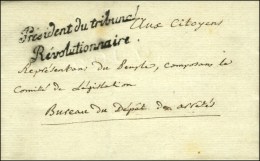 Président du tribunal
Révolutionnaire.
Aux Citoyens
Représentans du Peuple, composans le
Comité de Législation
Bureau du Dépôt des arrêtés